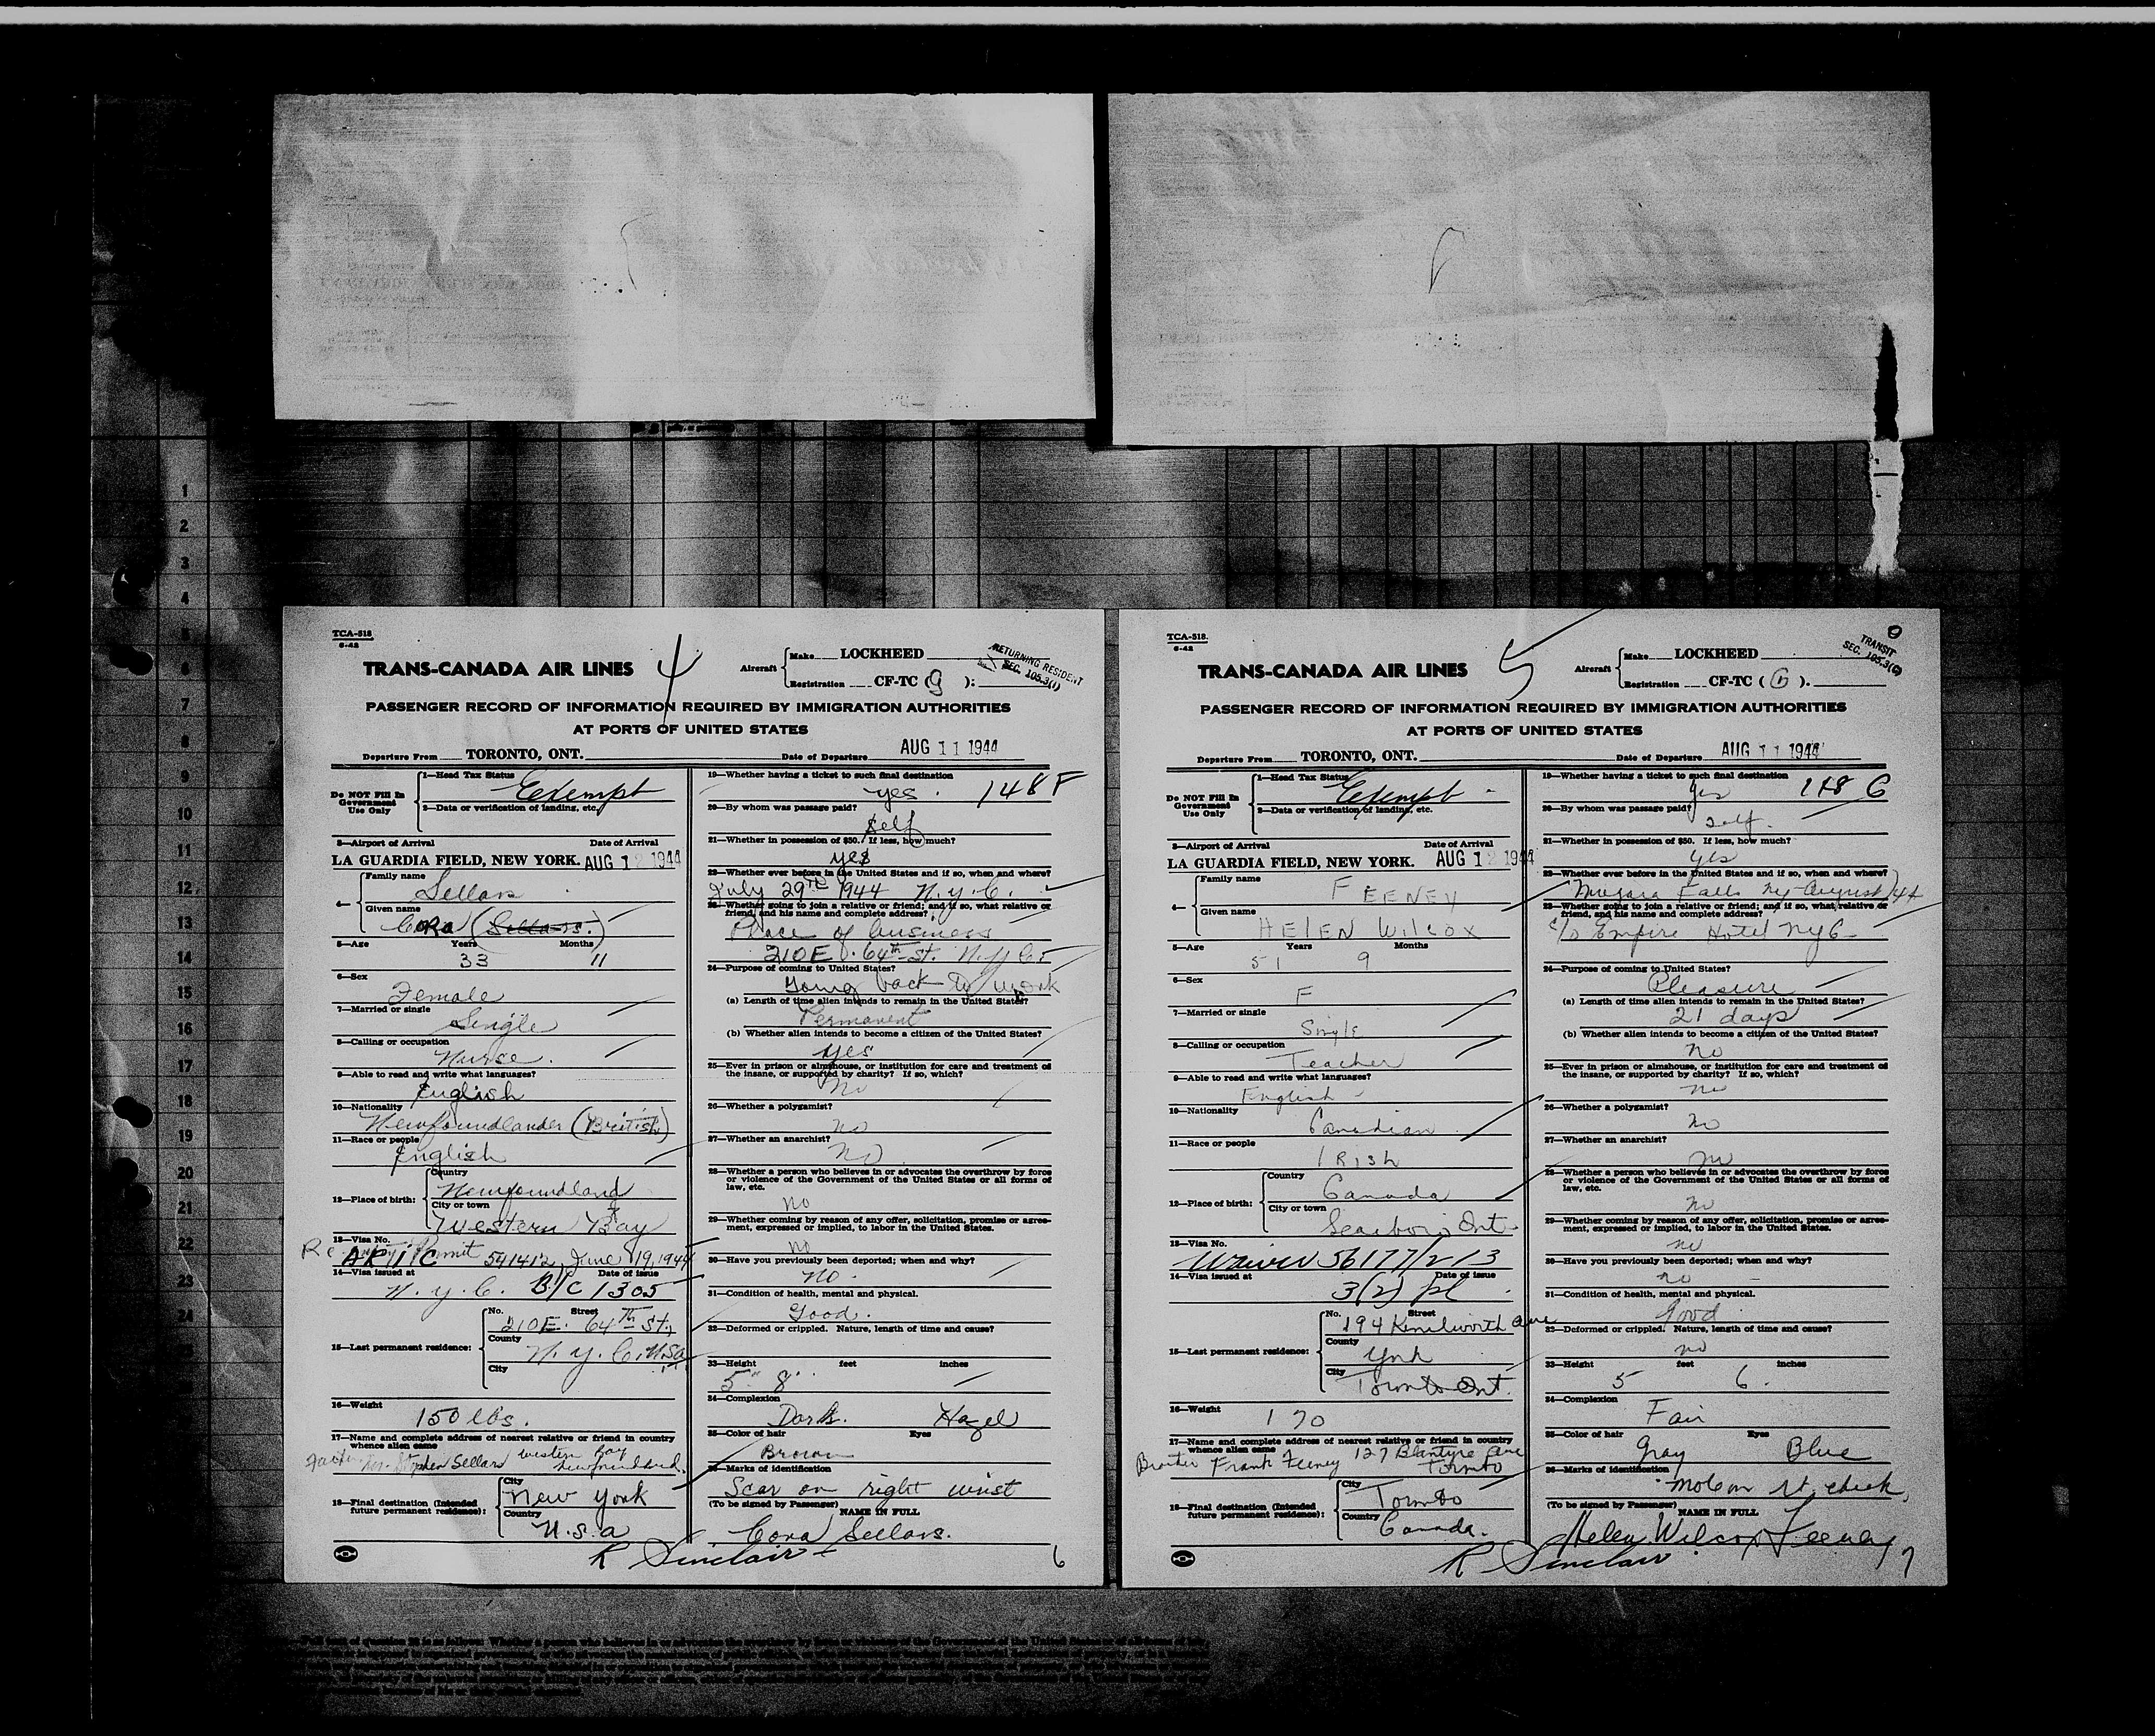 1
2
3
4
5
6
7
8
9
10
11
12
13
14
15
16
17
18
19
20
21
22
23
24
TCA-518
6-42
4
TRANS-CANADA AIR LINES
Aircraft
Make LOCKHEED
Registration CF-TC (g):
RETURNING RESIDENT
SEC. 105.3(1)
PASSENGER RECORD OF INFORMATION REQUIRED BY IMMIGRATION AUTHORITIES
AT PORTS OF UNITED STATES
Departure From TORONTO, ONT. Date of Departure AUG 11 1944
Do NOT Fill In
Government
Use Only
1—Head Tax Status Exempt
2—Data or verification of landing, etc.
3—Airport of Arrival Date of Arrival
LA GUARDIA FIELD, NEW YORK. AUG 12 1944
4—
Family name
Sellars
Given name
Cora (Sellars.)
5—Age Years Months
33 11
6—Sex
Female
7—Married or single
Single
8—Calling or occupation
Nurse.
9—Able to read and write what languages?
English
10—Nationality
Newfoundlander (British)
11—Race or people
English
12—Place of birth:
Country
Newfoundland
City or town
Western Bay
13—Visa No.
Permit 541412, June 19, 1944
14—Visa issued at Date of issue
N. Y. C. B/C 1305
15—Last permanent residence:
No. Street
210 E. 64th St.,
County
N. Y. C. U.S.A.
City
16—Weight
150 lbs.
17—Name and complete address of nearest relative or friend in country
whence alien came
Stephen Sellars Western Bay
Newfoundland.
18—Final destination (Intended
future permanent residence):
City
New York
Country
U.S.A
19—Whether having a ticket to such final destination
yes. 148 F
20—By whom was passage paid?
self
21—Whether in possession of $50. If less, how much?
yes
22—Whether ever before in the United States and if so, when and where?
July 29th 1944 N.Y.C.
23—Whether going to join a relative or friend; and if so, what relative or
friend, and his name and complete address?
Place of business
210 E. 64th St. N.Y.C.
24—Purpose of coming to United States?
Going back to work
(a) Length of time alien intends to remain in the United States?
Permanent
(b) Whether alien intends to become a citizen of the United States?
yes
25—Ever in prison or almshouse, or institution for care and treatment of
the insane, or supported by charity? If so, which?
No
26—Whether a polygamist?
No
27—Whether an anarchist?
No
28—Whether a person who believes in or advocates the overthrow by force
or violence of the Government of the United States or all forms of
law, etc.
No
29—Whether coming by reason of any offer, solicitation, promise or agree-
ment, expressed or implied, to labor in the United States.
No
30—Have you previously been deported; when and why?
No.
31—Condition of health, mental and physical.
Good.
32—Deformed or crippled. Nature, length of time and cause?
33—Height feet inches
5" 8"
34—Complexion
Dark. Hazel
35—Color of hair Eyes
Brown
36—Marks of identification
Scar on right wrist
(To be signed by Passenger) NAME IN FULL
Cora Sellars.
R Sinclair
6
TCA-518.
6-42
5
TRANS-CANADA AIR LINES
Aircraft
Make LOCKHEED
Registration CF-TC (G).
TRANSIT
SEC. 105.3(C)
PASSENGER RECORD OF INFORMATION REQUIRED BY IMMIGRATION AUTHORITIES
AT PORTS OF UNITED STATES
Departure From TORONTO, ONT. Date of Departure AUG 11 1944
Do NOT Fill In
Government
Use Only
1—Head Tax Status Exempt
2—Data or verification of landing, etc.
3—Airport of Arrival Date of Arrival
LA GUARDIA FIELD, NEW YORK. AUG 12 1944
4—
Family name
FEENEY
Given name
HELEN Wilcox
5—Age Years Months
51 9
6—Sex
F
7—Married or single
Single
8—Calling or occupation
Teacher
9—Able to read and write what languages?
English
10—Nationality
Canadian
11—Race or people
IRish
12—Place of birth:
Country
Canada
City or town
Scarboro Ont
13—Visa No.
Waiver 56177/213
14—Visa issued at Date of issue
3(2) pl
15—Last permanent residence:
No. Street
194 Kenilworth Ave
County
York
City
Toronto Ont.
16—Weight
170
17—Name and complete address of nearest relative or friend in country
whence alien came
Brother Frank Feeney 127 Blantyre Ave
Toronto
18—Final destination (Intended
future permanent residence):
City
Toronto
Country
Canada.
19—Whether having a ticket to such final destination
yes 148 G
20—By whom was passage paid?
self.
21—Whether in possession of $50. If less, how much?
yes
22—Whether ever before in the United States and if so, when and where?
Niagara Falls NY August/44
23—Whether going to join a relative or friend; and if so, what relative or
friend, and his name and complete address?
c/o Empire Hotel NYC
24—Purpose of coming to United States?
Pleasure
(a) Length of time alien intends to remain in the United States?
21 days
(b) Whether alien intends to become a citizen of the United States?
no
25—Ever in prison or almshouse, or institution for care and treatment of
the insane, or supported by charity? If so, which?
no
26—Whether a polygamist?
no
27—Whether an anarchist?
no
28—Whether a person who believes in or advocates the overthrow by force
or violence of the Government of the United States or all forms of
law, etc.
no
29—Whether coming by reason of any offer, solicitation, promise or agree-
ment, expressed or implied, to labor in the United States.
no
30—Have you previously been deported; when and why?
no
31—Condition of health, mental and physical.
good
32—Deformed or crippled. Nature, length of time and cause?
no
33—Height feet inches
5 6.
34—Complexion
Fair
35—Color of hair Eyes
Gray Blue
36—Marks of identification
mole on rt. cheek.
(To be signed by Passenger) NAME IN FULL
Helen Wilcox Feeney
R Sinclair
7